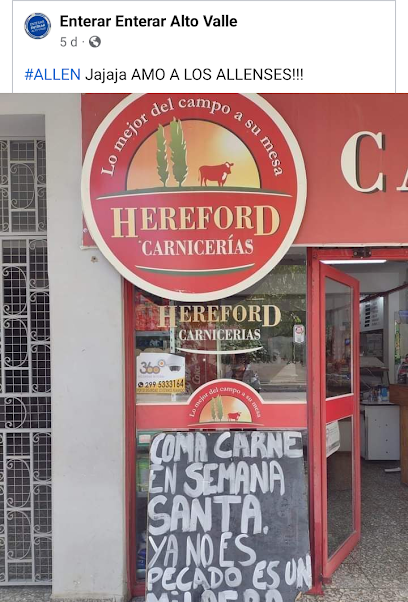 Enterar Enterar Alto Valle
5 d ·
#ALLEN Jajaja AMO A LOS ALLENSES!!!
Lo mejor del campo a su mesa
HEREFORD
CARNICERÍAS
CA
HEREFORD
CARNICERIAS
360
299 5333164
Lo mejor del campo a su mesa
COMA CARNE
EN SEMANA
SANTA.
YA NO ES
PECADO ES UN